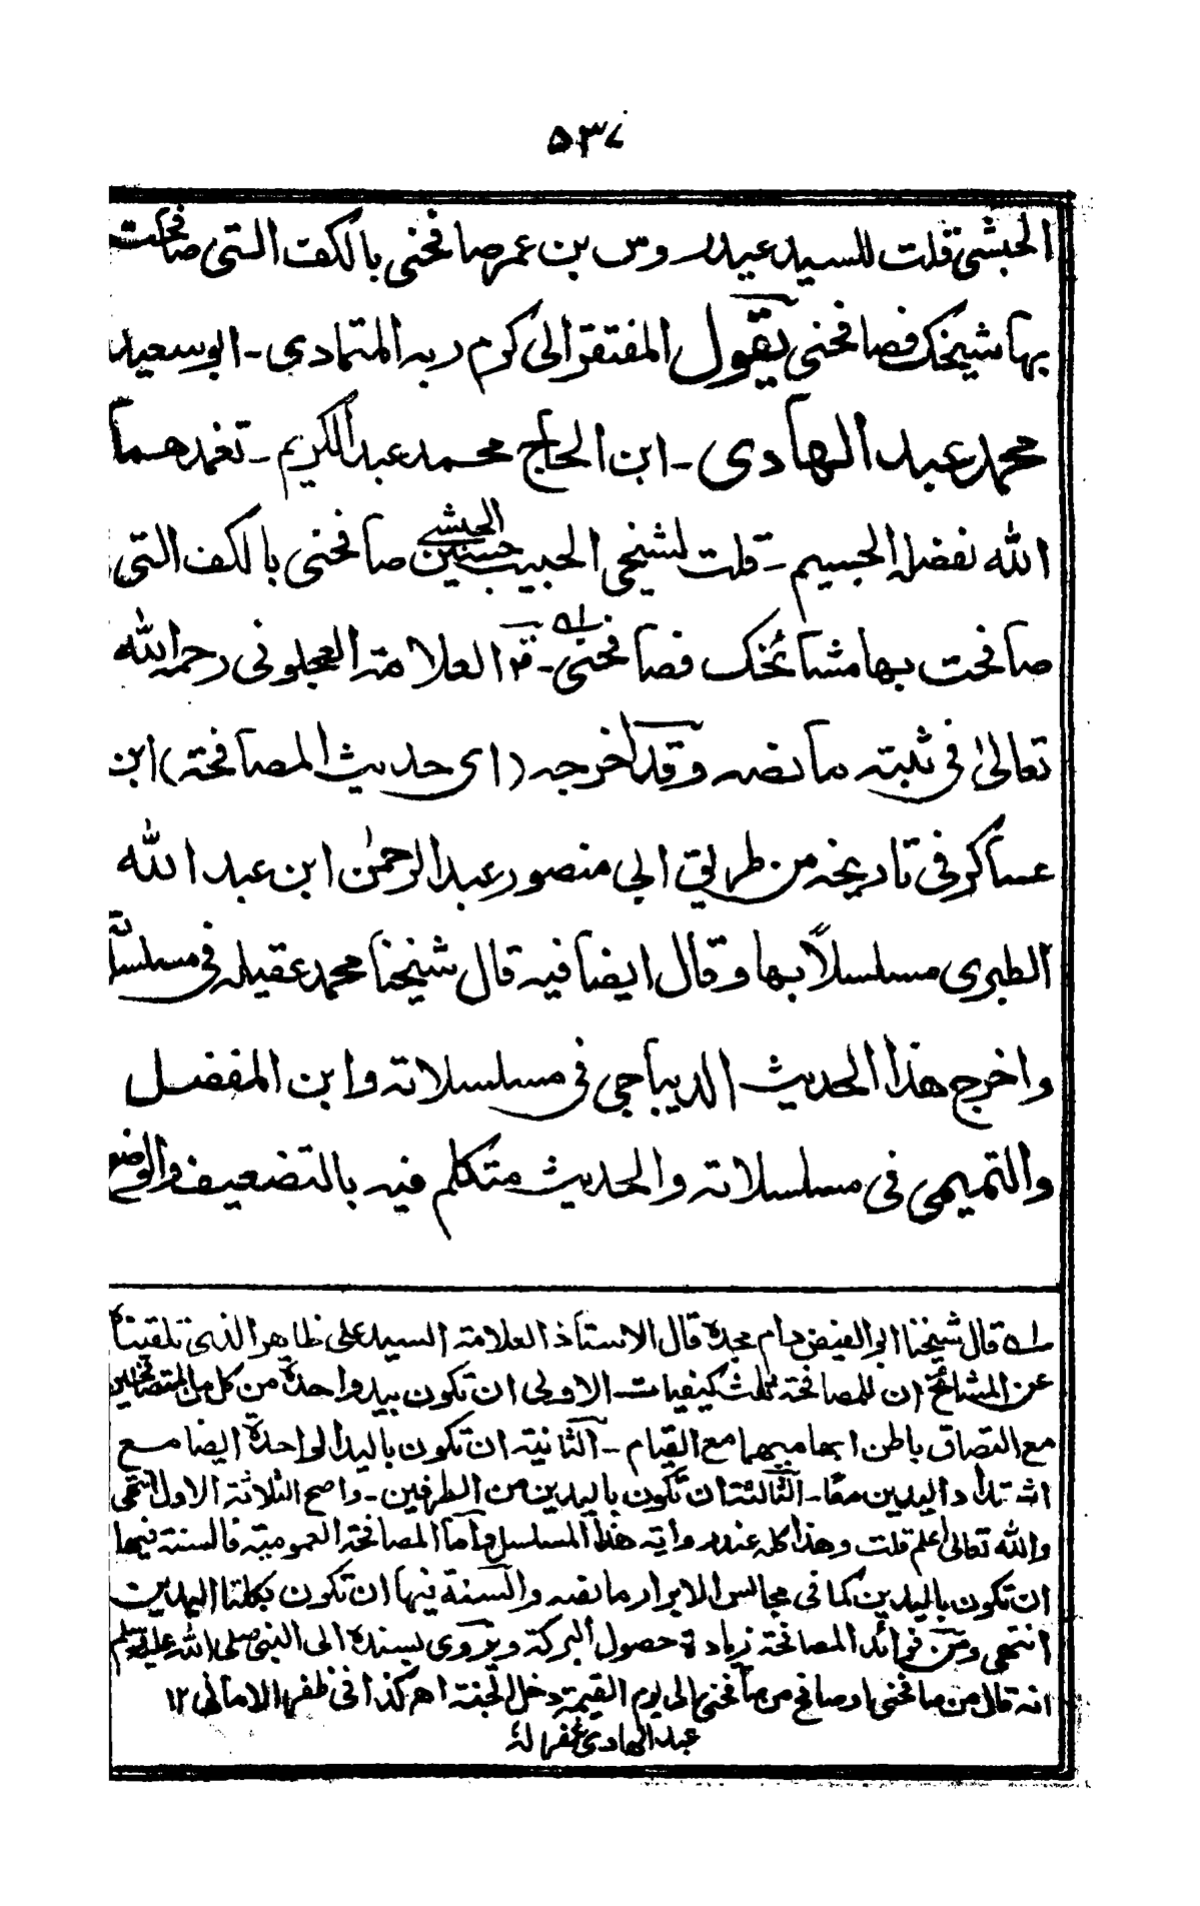 ۵۳۷
الحبشي قلت للسيد عيدروس بن عمر صافحني بالكف التي صافحت
بها شيخك فصافحني يقول المفتقر الى كرم ربه المتمادي - ابو سعيد
محمد عبد الهادي - ابن الحاج محمد عبد الكريم - تغمدهما
الله بفضله الجسيم - قلت لشيخي الحبيب حسين الحبشي صافحني بالكف التي
صافحت بها مشائخك فصافحني له - قال العلامة العجلوني رحمه الله
تعالىٰ في ثبته ما نصه وقد اخرجه (اى حديث المصافحة) ابن
عساكر في تاريخه من طريق ابي منصور عبد الرحمٰن ابن عبد الله
الطبري مسلسلاً بها وقال ايضا فيه قال شيخنا محمد عقيله في مسلسلاته
واخرج هذا الحديث الديباجي في مسلسلاته وابن المفضل
والتميمي في مسلسلاته والحديث متكلم فيه بالتضعيف والوضع
له قال شيخنا ابو الفيض دام مجده قال الاستاذ العلامة السيد على ظاهر الذى تلقيناه
عن المشائخ ان للمصافحة ثلث كيفيات الاولى ان تكون بيد واحدة من كل من المتصافحين
مع التصاق باطن ابهاميهما مع القيام - الثانية ان تكون باليد الواحدة ايضا مع
اشتداد اليدين معًا - الثالثة ان تكون باليدين من الطرفين - واصح الثلاثة الاول انتهى
والله تعالى اعلم قلت وهذا كله عند رواية هذا المسلسل واما المصافحة العمومية فالسنة فيها
ان تكون باليدين كما في مجالس الابرار ما نصه والسنة فيها ان تكون بكلتا اليدين
انتهى ومن فوائد المصافحة زيادة حصول البركة ويروى بسنده الى النبي صلى الله عليه وسلم
انه قال من صافحني او صافح من صافحني الى يوم القيمة دخل الجنة اهـ كذا في ظفر الاماني ١٢
عبد الهادى غفر له